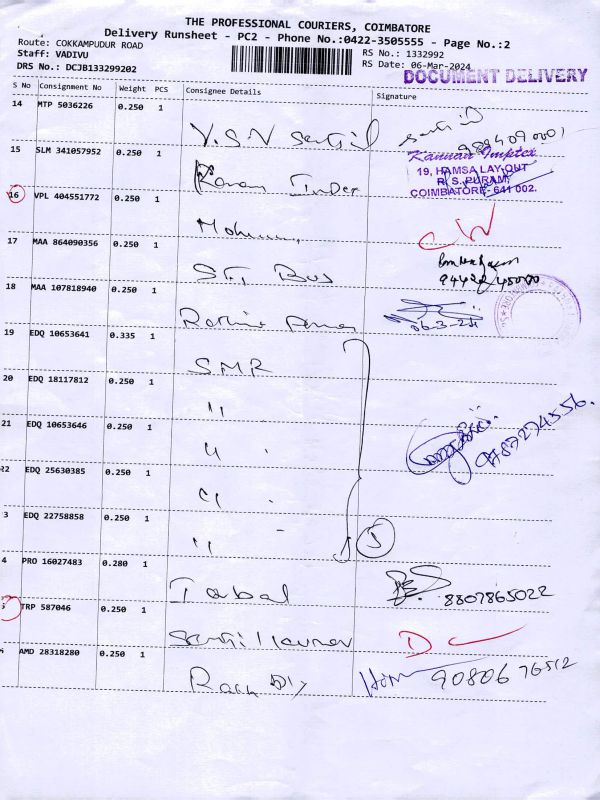 THE PROFESSIONAL COURIERS, COIMBATORE
Delivery Runsheet - PC2 - Phone No.:0422-3505555 - Page No.:2
Route: COKKAMPUDUR ROAD
RS No.: 1332992
Staff: VADIVU
RS Date: 06-Mar-2024
DRS No.: DCJB133299202
DOCUMENT DELIVERY
S No Consignment No Weight PCS Consignee Details Signature
14 MTP 5036226 0.250 1
V.S.V Sentil
9894090001
15 SLM 341057952 0.250 1
Kannan Imptex
19, HAMSA LAY-OUT
R. S. PURAM,
COIMBATORE- 641 002.
16 VPL 404551772 0.250 1
17 MAA 864090356 0.250 1
Bus
18 MAA 107818940 0.250 1
06-3-24
19 EDQ 10653641 0.335 1
SMR
20 EDQ 18117812 0.250 1
"
21 EDQ 10653646 0.250 1
"
9787274556.
22 EDQ 25630385 0.250 1
"
3 EDQ 22758858 0.250 1
"
5
4 PRO 16027483 0.280 1
Iqbal
8807865022
5 TRP 587046 0.250 1
D
AMD 28318280 0.250 1
90806 76512